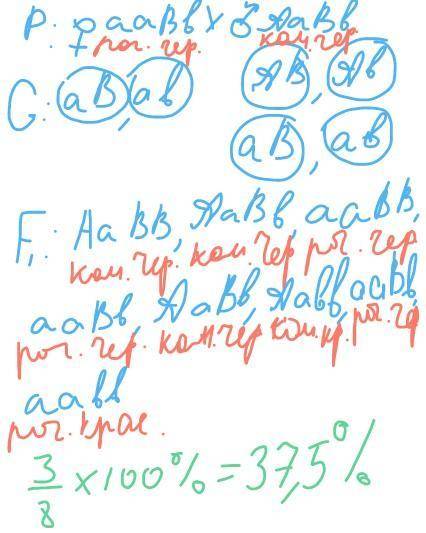 P: ♀ aaBb x ♂ AaBb
рог. чер. ком. чер
G: aB, ab AB, Ab
aB, ab
F₁: AaBB, AaBb, aaBB,
ком. чер. ком. чер рог. чер
aaBb, AaBb, Aabb, aaBb,
рог. чер. ком. чер ком. кр. рог. чер
aabb
рог. крас.
3/8 x 100% = 37,5%